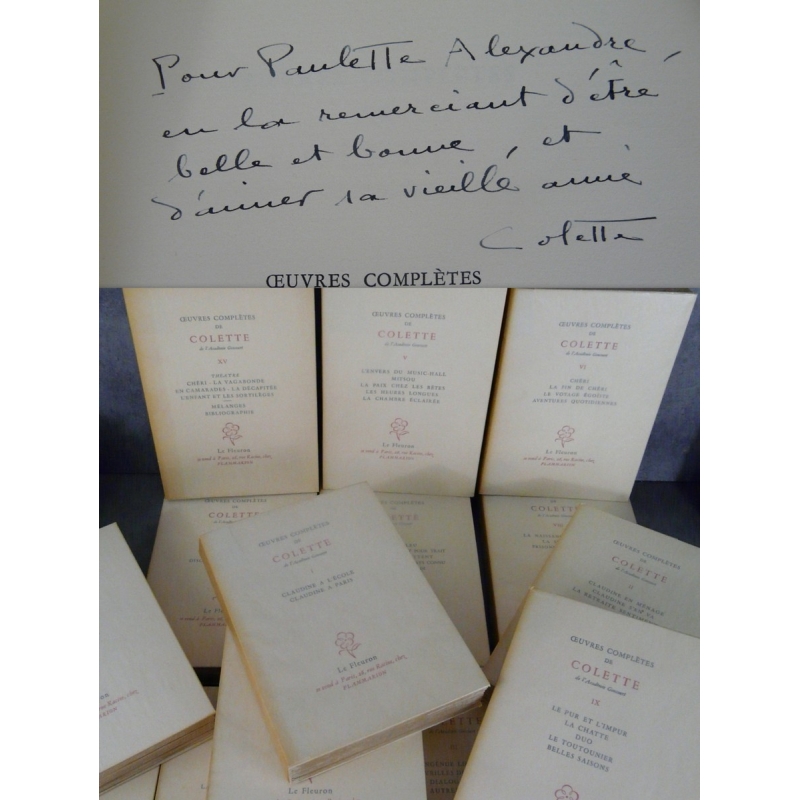 Pour Paulette Alexandre,
en la remerciant d'être
belle et bonne, et
d'aimer sa vieille amie
Colette
ŒUVRES COMPLÈTES
ŒUVRES COMPLÈTES
DE
COLETTE
de l'Académie Goncourt
XV
THÉATRE
CHÉRI - LA VAGABONDE
EN CAMARADES - LA DÉCAPITÉE
L'ENFANT ET LES SORTILÈGES
MÉLANGES
BIBLIOGRAPHIE
Le Fleuron
FLAMMARION
ŒUVRES COMPLÈTES
DE
COLETTE
de l'Académie Goncourt
L'ENVERS DU MUSIC-HALL
MITSOU
LA PAIX CHEZ LES BÊTES
LES HEURES LONGUES
LA CHAMBRE ÉCLAIRÉE
Le Fleuron
FLAMMARION
ŒUVRES COMPLÈTES
DE
COLETTE
de l'Académie Goncourt
VI
CHÉRI
LA FIN DE CHÉRI
LE VOYAGE ÉGOÏSTE
AVENTURES QUOTIDIENNES
Le Fleuron
FLAMMARION
ŒUVRES COMPLÈTES
COLETTE
COLETTE
COLETTE
Le Fleuron
ŒUVRES COMPLÈTES
DE
COLETTE
de l'Académie Goncourt
I
CLAUDINE A L'ÉCOLE
CLAUDINE A PARIS
Le Fleuron
FLAMMARION
ŒUVRES COMPLÈTES
DE
COLETTE
de l'Académie Goncourt
CLAUDINE EN MÉNAGE
LA RETRAITE
ŒUVRES COMPLÈTES
DE
COLETTE
de l'Académie Goncourt
IX
LE PUR ET L'IMPUR
LA CHATTE
DUO
LE TOUTOUNIER
BELLES SAISONS
Le Fleuron